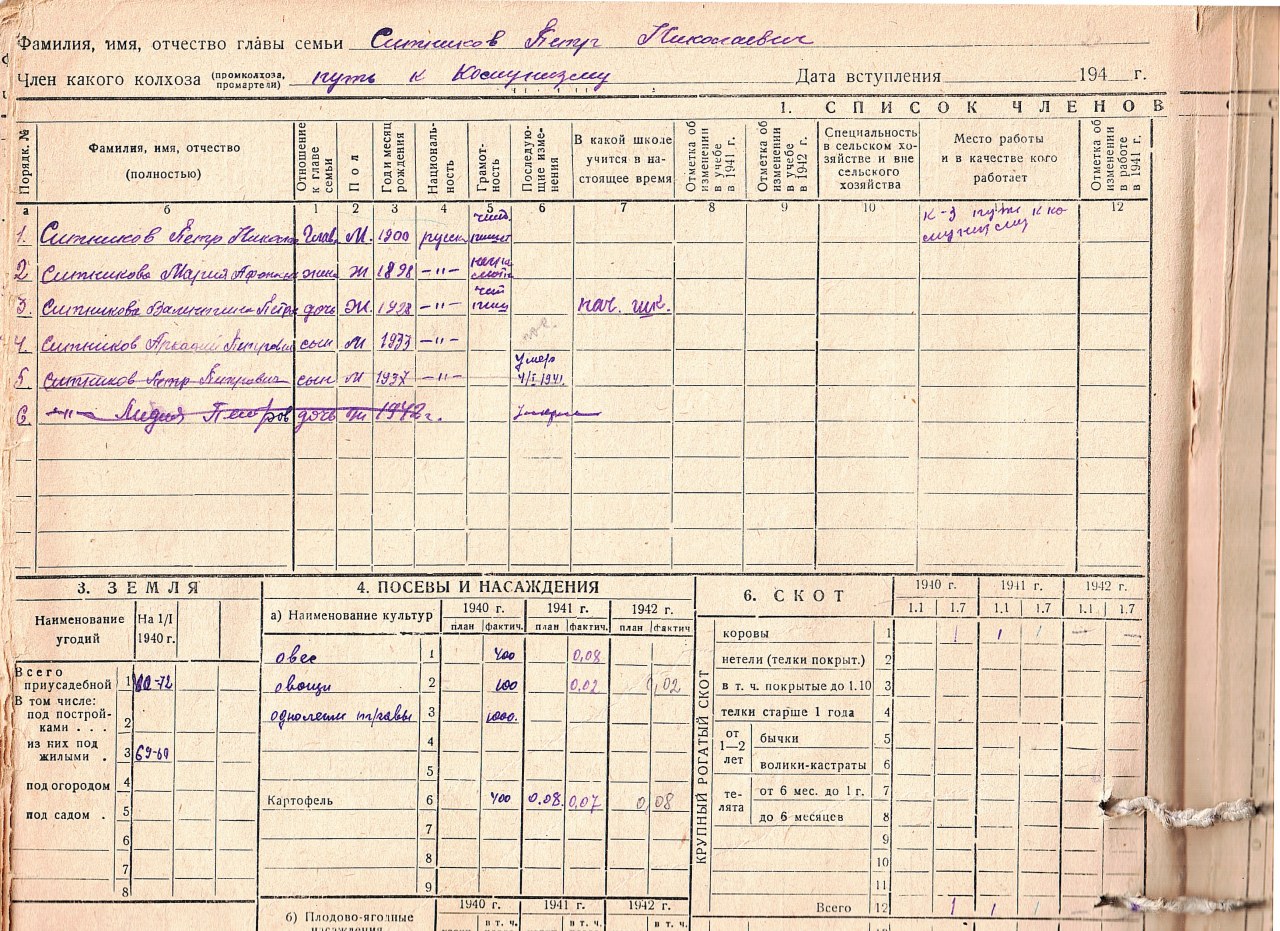 Фамилия, имя, отчество главы семьи Ситников Петр Николаевич
Член какого колхоза (промколхоза, промартели) путь к Комунизму Дата вступления 194 г.
1. СПИСОК ЧЛЕНОВ
Порядк. № Фамилия, имя, отчество (полностью) Отношение к главе семьи Пол Год и месяц рождения Националь-ность Грамот-ность Последую-щие изме-нения В какой школе учится в на-стоящее время Отметка об изменении в учебе в 1941 г. Отметка об изменении в учебе в 1942 г. Специальность в сельском хо-зяйстве и вне сельского хозяйства Место работы и в качестве кого работает Отметка об изменении в работе в 1941 г.
а б 1 2 3 4 5 6 7 8 9 10 11 12
1. Ситников Петр Никола Глав. М. 1900 русск. чит. пишет к-з путь к комунизму
2 Ситникова Мария Афонас жена Ж 1898 —"—
3. Ситникова Валентина Петр дочь Ж. 1928 —"— чит пиш нач. шк.
4. Ситников Аркадий Петрович сын М 1933 —"—
5 Ситников Петр Петрович сын М 1937 —"— Умер 4/I 1941.
6. —"— Лидия Петров дочь 1942 г. умерла
3. ЗЕМЛЯ
Наименование угодий На 1/I 1940 г.
Всего приусадебной 1
В том числе:
под построй-ками . . . 2
из них под жилыми . 3 69-60
под огородом 4
под садом . 5
6
7
8
4. ПОСЕВЫ И НАСАЖДЕНИЯ
а) Наименование культур 1940 г. 1941 г. 1942 г.
план фактич. план фактич. план фактич
овес 1 400 0,08
овощи 2 100 0.02 0,02
однолетн травы 3 1000.
4
5
Картофель 6 400 0.08 0,07 0,08
7
8
9
1940 г. 1941 г. 1942 г.
б) Плодово-ягодные насаждения в т. ч. в т. ч. в т. ч.
6. СКОТ 1940 г. 1941 г. 1942 г.
1.1 1.7 1.1 1.7 1.1 1.7
КРУПНЫЙ РОГАТЫЙ СКОТ
коровы 1 1 1 1 — —
нетели (телки покрыт.) 2
в т. ч. покрытые до 1.10 3
телки старше 1 года 4
от 1—2 лет бычки 5
волики-кастраты 6
те-лята от 6 мес. до 1 г. 7
до 6 месяцев 8
9
10
11
Всего 12 1 1 1